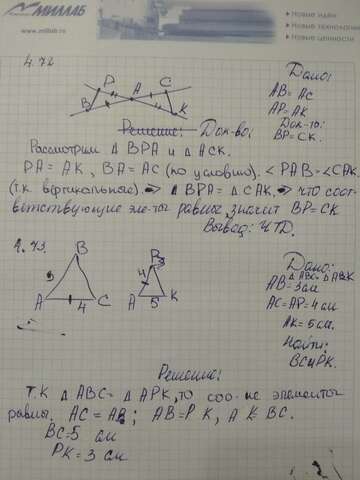 МИЛЛАБ
www.millab.ru
Новые идеи
Новые технологии
Новые ценности
4.72
Дано:
AB = AC
AP = AK
Док-ть:
BP = CK.
P A C
B K
Решение: Док-во:
Рассмотрим △ BPA и △ ACK.
PA = AK, BA = AC (по условию). ∠PAB = ∠CAK
(т.к вертикальные) => △ BPA = △ CAK => что соот-
ветствующие эле-ты равны, значит BP = CK
Вывод: ЧТД.
4.73.
B
3
A 4 C
P 3
4
A 5 K
Дано:
△ABC = △APK
AB = 3 см
AC = AP = 4 см
AK = 5 см.
Найти:
BC и PK.
Решение:
Т.К △ ABC = △ APK, то соо-ие элементы
равны. AC = AB; AB = P K, A K = BC.
BC = 5 см
PK = 3 см